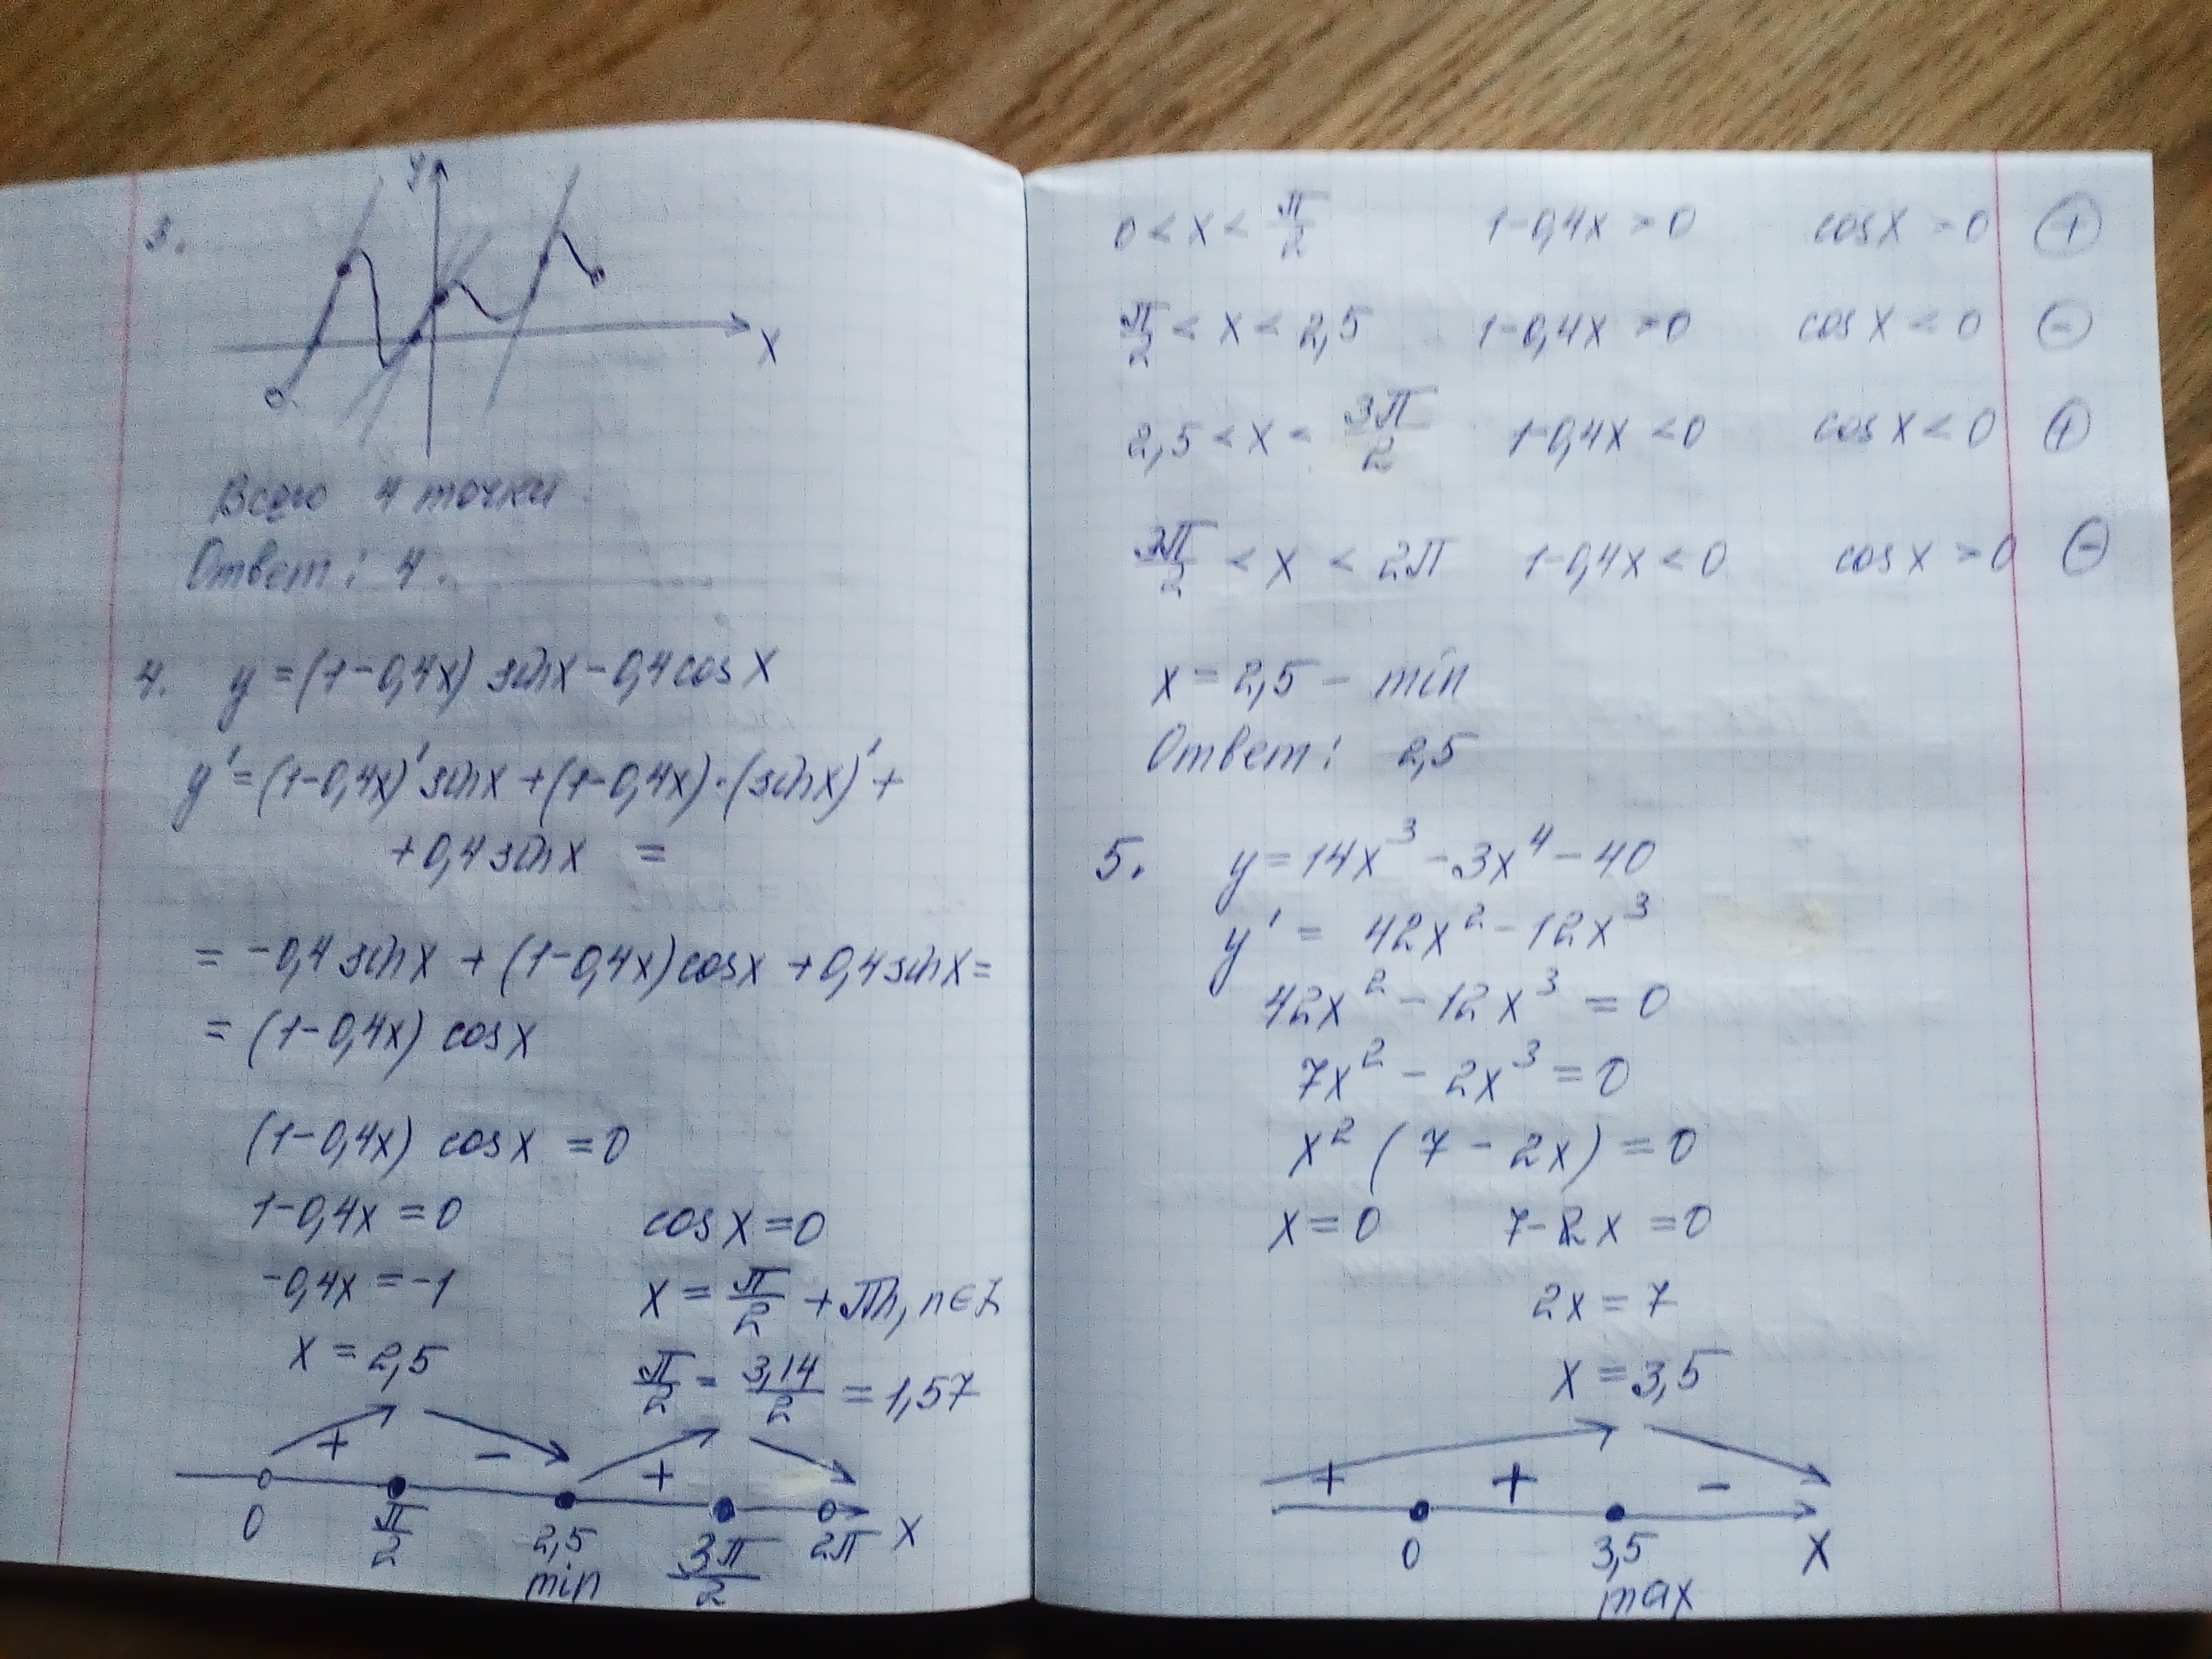 3.
y
x
Всего 4 точки
Ответ: 4.
4. y = (1-0,4x) sinx - 0,4 cos x
y' = (1-0,4x)' sinx + (1-0,4x)·(sinx)' +
+ 0,4 sinx =
= -0,4 sinx + (1-0,4x) cosx + 0,4 sinx =
= (1-0,4x) cosx
(1-0,4x) cosx = 0
1-0,4x = 0 cosx = 0
-0,4x = -1 x = π/2 + πn, n∈Z
x = 2,5 π/2 = 3,14/2 = 1,57
+ - +
0 π/2 2,5 3π/2 2π x
min
0 < x < π/2 1-0,4x > 0 cosx > 0 +
π/2 < x < 2,5 1-0,4x > 0 cosx < 0 -
2,5 < x < 3π/2 1-0,4x < 0 cosx < 0 +
3π/2 < x < 2π 1-0,4x < 0 cosx > 0 -
x = 2,5 - min
Ответ: 2,5
5. y = 14x³ - 3x⁴ - 40
y' = 42x² - 12x³
42x² - 12x³ = 0
7x² - 2x³ = 0
x² (7 - 2x) = 0
x = 0 7-2x = 0
2x = 7
x = 3,5
+ + -
0 3,5 x
max